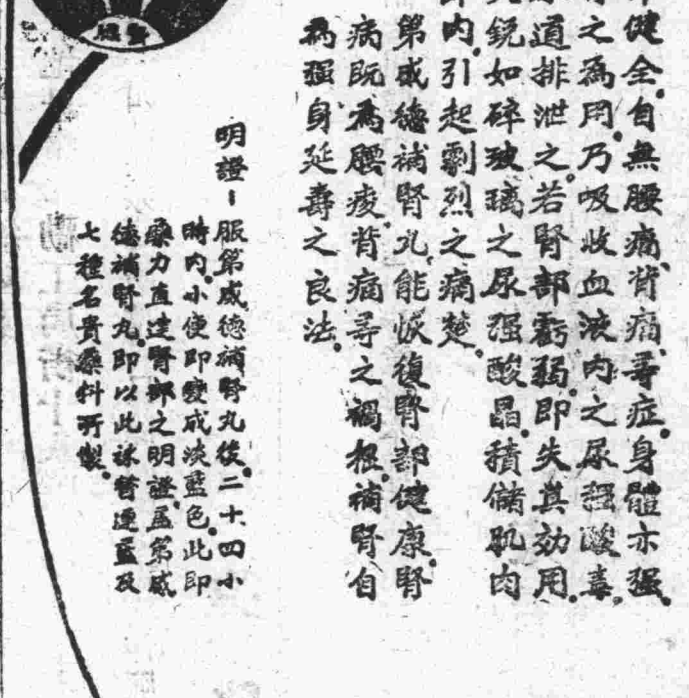 健全。自無腰痛、背痛等症。身體亦强。
之為用。乃吸收血液內之尿强酸毒。
道排泄之。若腎部虧弱。即失其効用。
銳如碎玻璃之尿强酸晶。積儲肌肉
內。引起劇烈之痛楚。
第威德補腎丸。能恢復腎部健康。腎
病旣為腰痠。背痛等之禍根。補腎自
為强身延壽之良法。
明證-服第威德補腎丸後。二十四小
時內。小便即變成淡藍色。此即
藥力直達腎部之明證。蓋第威
德補腎丸。即以此
七種名貴藥料所製。